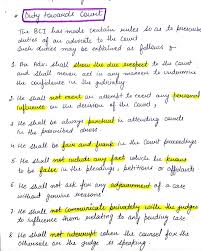 Duty towards Court
The BCI has made certain rules so as to prescribe
duties of an advocate to the Court
Such duties may be explained as follows
1. The Adv. shall show the due respect to the Court
and shall never act in any manner to undermine
the confidence in the judiciary
2. He shall not exert an attempt to exert any personal
influence on the decision of the Court
3. He shall be always punctual in attending courts
in the prescribed dress
4. He shall be fair and frank in the Court proceedings
5. He shall not include any fact which he knows
to be false in the pleadings, petitions or affidavits
6. He shall not ask for any adjournment of a case
without genuine reasons
7. He shall not communicate privately with the judges
to influence them relating to any pending case
8. He shall not interrupt when the counsel for the
otherside or the judge is speaking